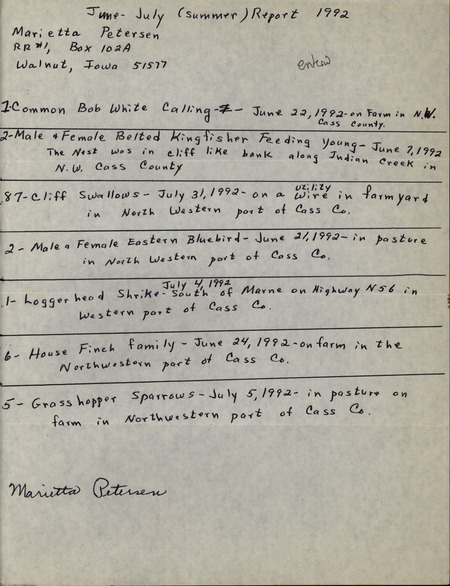 June- July (summer) Report 1992
Marietta Petersen
RR#1, Box 102A
Walnut, Iowa 51577
1-Common Bob White Calling- - June 22, 1992-on Farm in N.W.
Cass County.
2-Male & Female Belted Kingfisher Feeding Young- June 7, 1992
The Nest was in cliff like bank along Indian Creek in
N.W. Cass County
87-Cliff Swallows- July 31, 1992- on a utility wire in farmyard
in North Western part of Cass Co.
2- Male & Female Eastern Bluebird- June 21, 1992- in pasture
in North Western part of Cass Co.
July 4, 1992
1- Loggerhead Shrike- South of Marne on Highway N56 in
Western part of Cass Co.
6- House Finch family - June 24, 1992-on farm in the
Northwestern part of Cass Co.
5- Grasshopper Sparrows- July 5, 1992- in pasture on
farm in Northwestern part of Cass Co.
Marietta Petersen